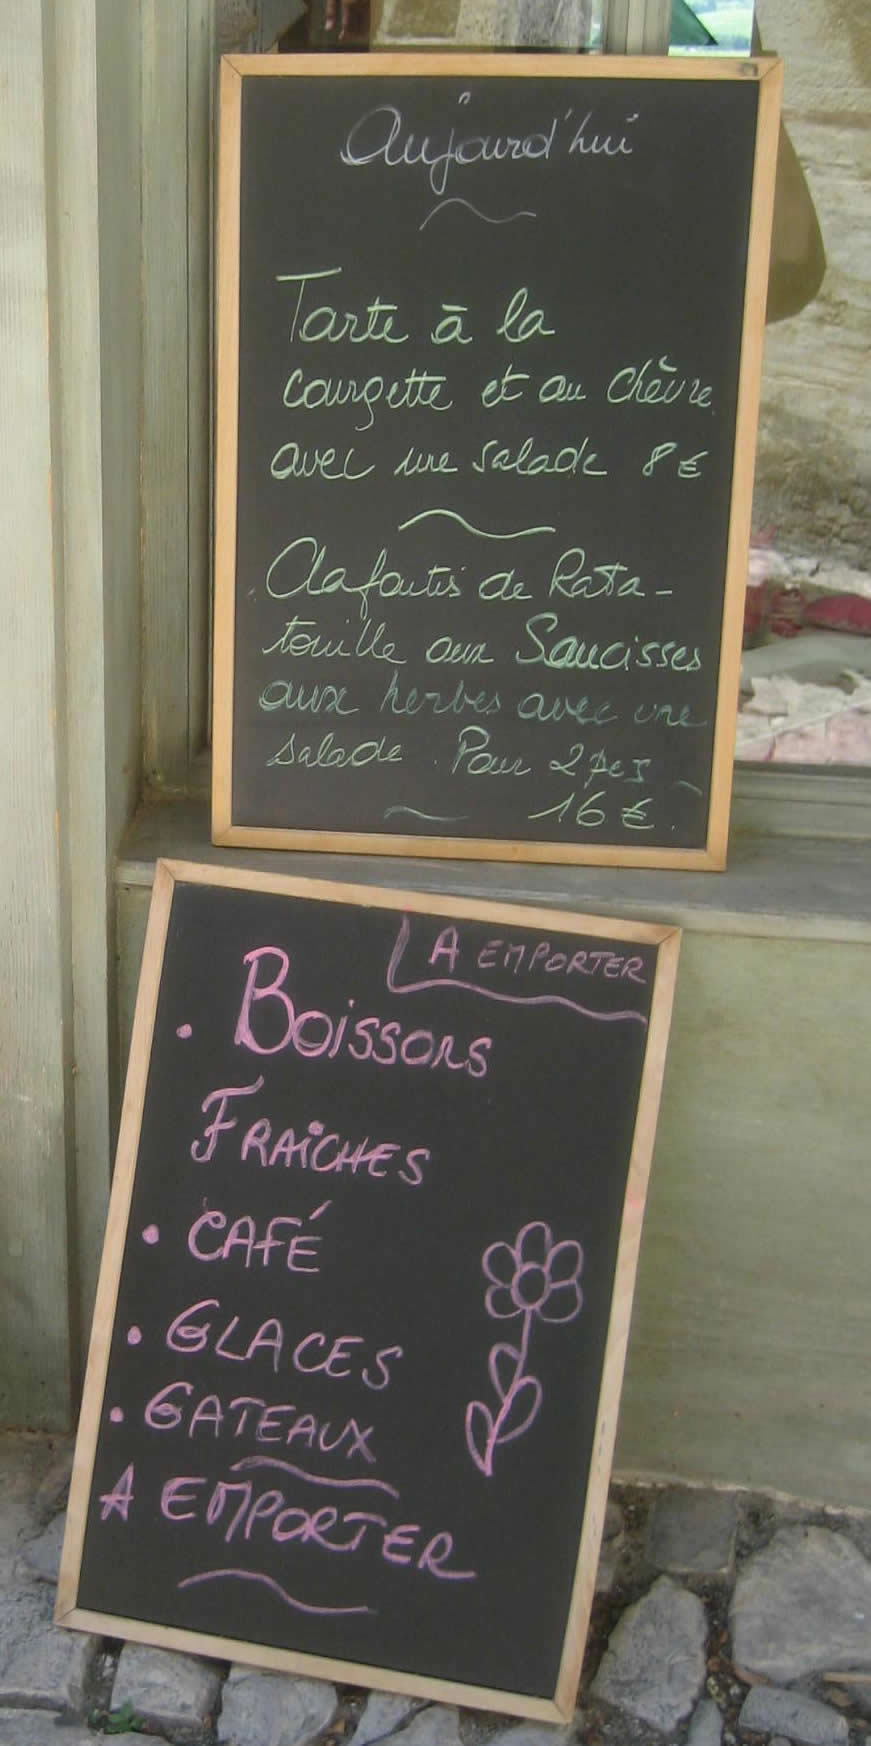 Aujourd'hui
Tarte à la
courgette et au chèvre
avec une salade 8 €
Clafoutis de Rata-
touille aux Saucisses
aux herbes avec une
salade. Pour 2 pers
16 €.
A EMPORTER
• BOISSONS
FRAÎCHES
• CAFÉ
• GLACES
• GATEAUX
A EMPORTER